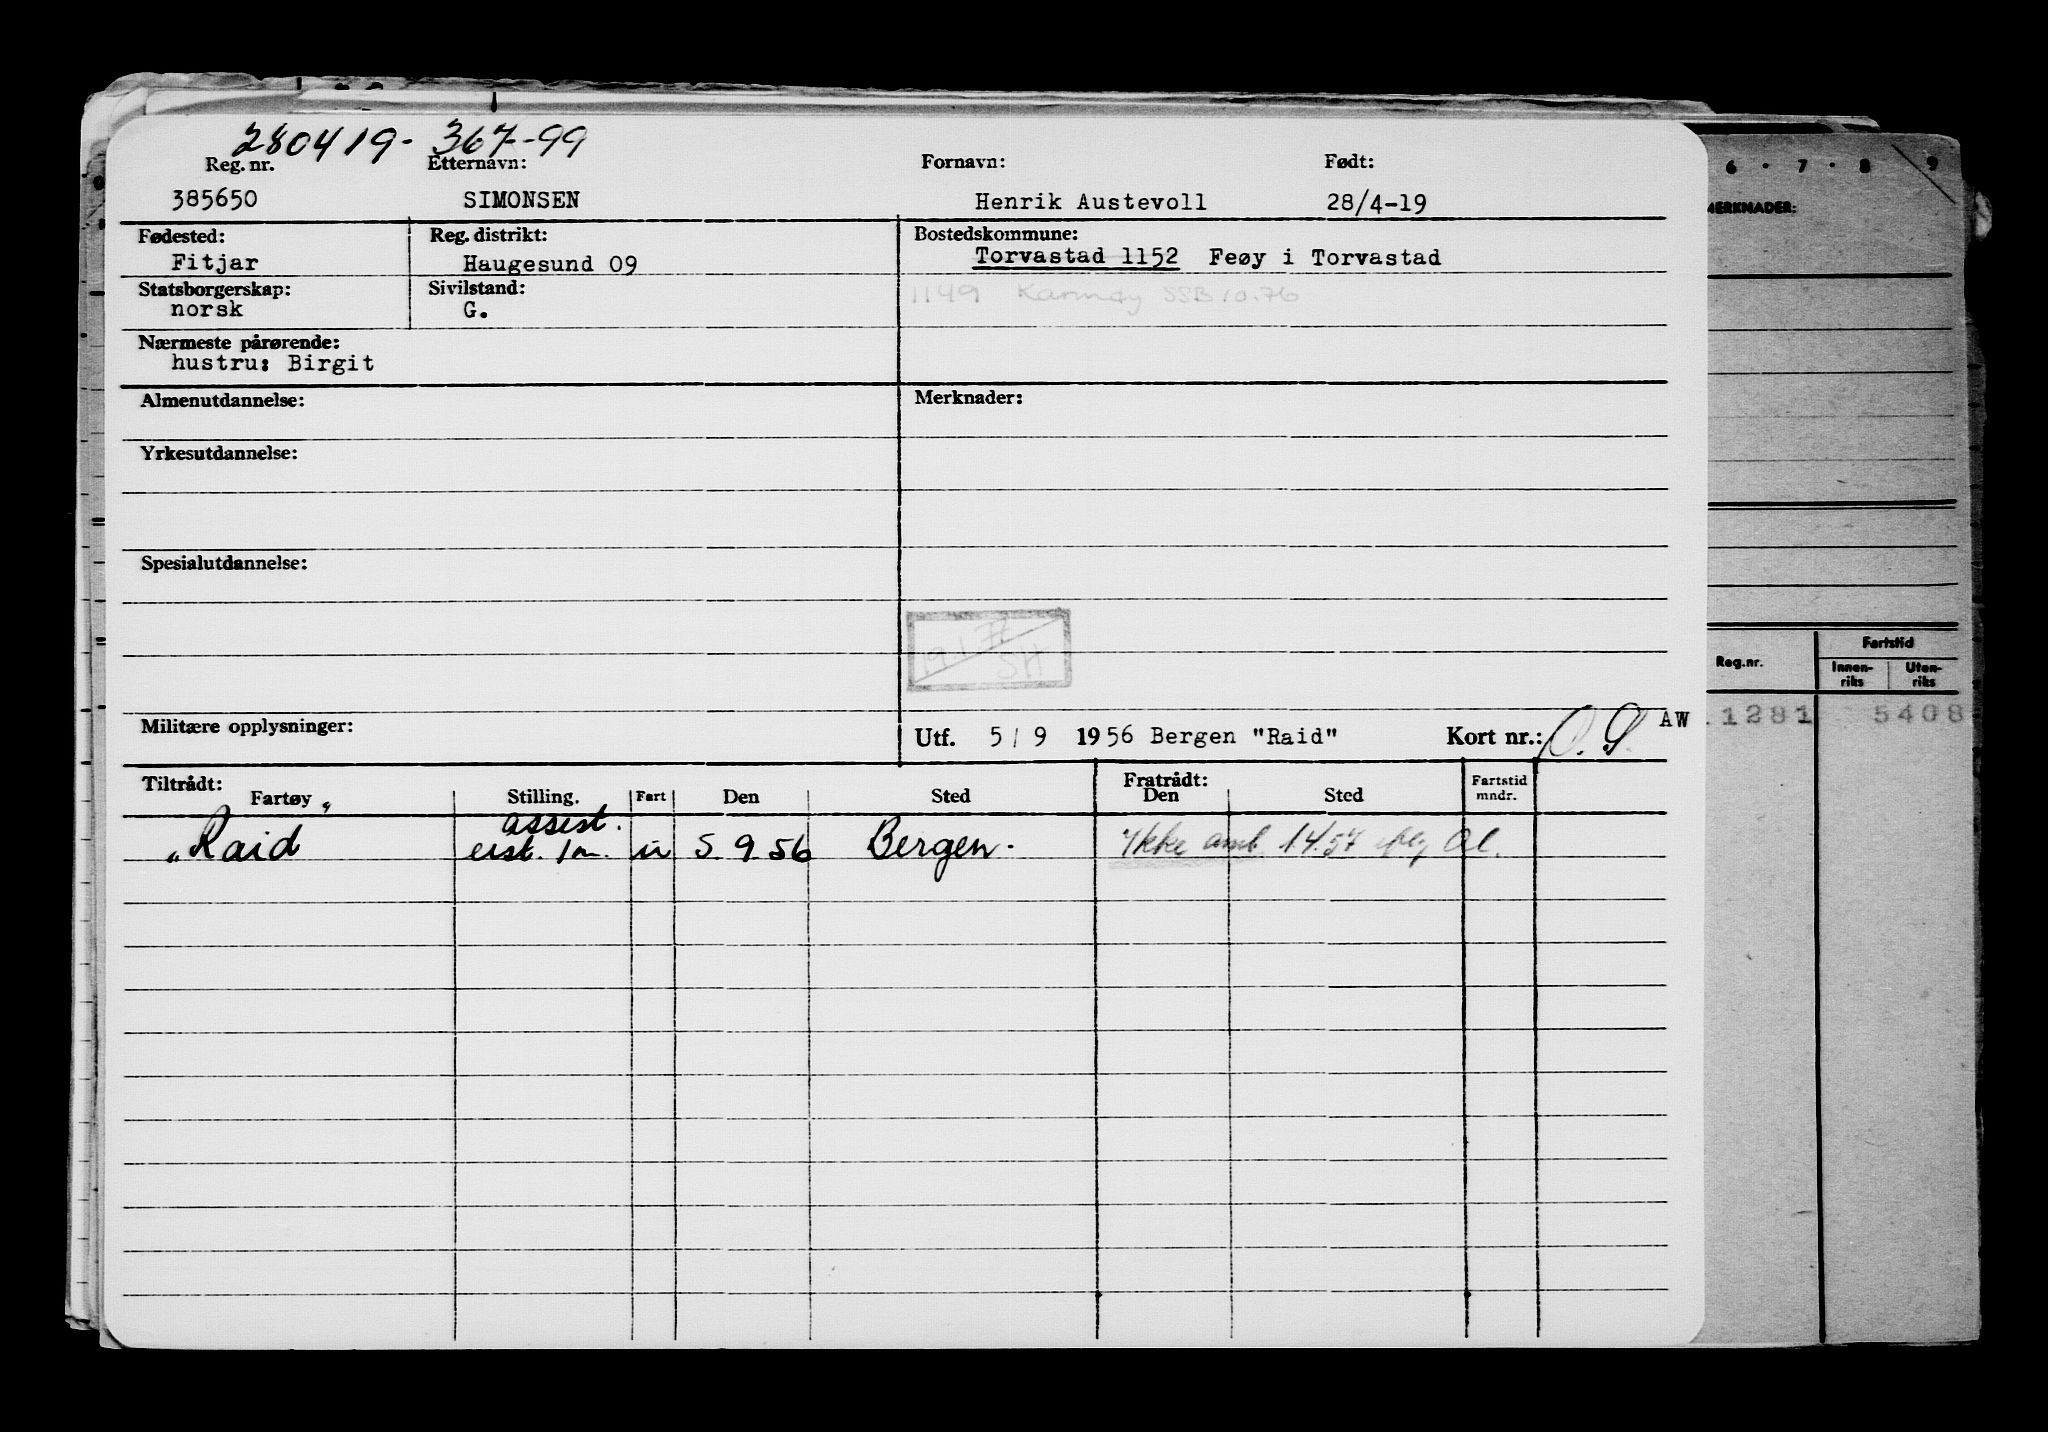 280419-367-99
Reg. nr. Etternavn: Fornavn: Født:
385650 SIMONSEN Henrik Austevoll 28/4-19
Fødested: Reg. distrikt: Bostedskommune:
Fitjar Haugesund 09 Torvastad 1152 Feøy i Torvastad
Statsborgerskap: Sivilstand: 1149 Karmøy SSB 10.76
norsk G.
Nærmeste pårørende:
hustru: Birgit
Almenutdannelse: Merknader:
Yrkesutdannelse:
Spesialutdannelse:
19.1.77
SH
Militære opplysninger: Utf. 5/9 1956 Bergen "Raid" Kort nr.: AW
Tiltrådt: Fratrådt:
Fartøy Stilling. Fart Den Sted Den Sted Fartstid mndr.
"Raid" assist. 5.9.56 Bergen. Ikke 14.57
6 · 7 · 8 9
MERKNADER:
Reg.nr. Fartstid
Innen-riks Uten-riks
1281 5408